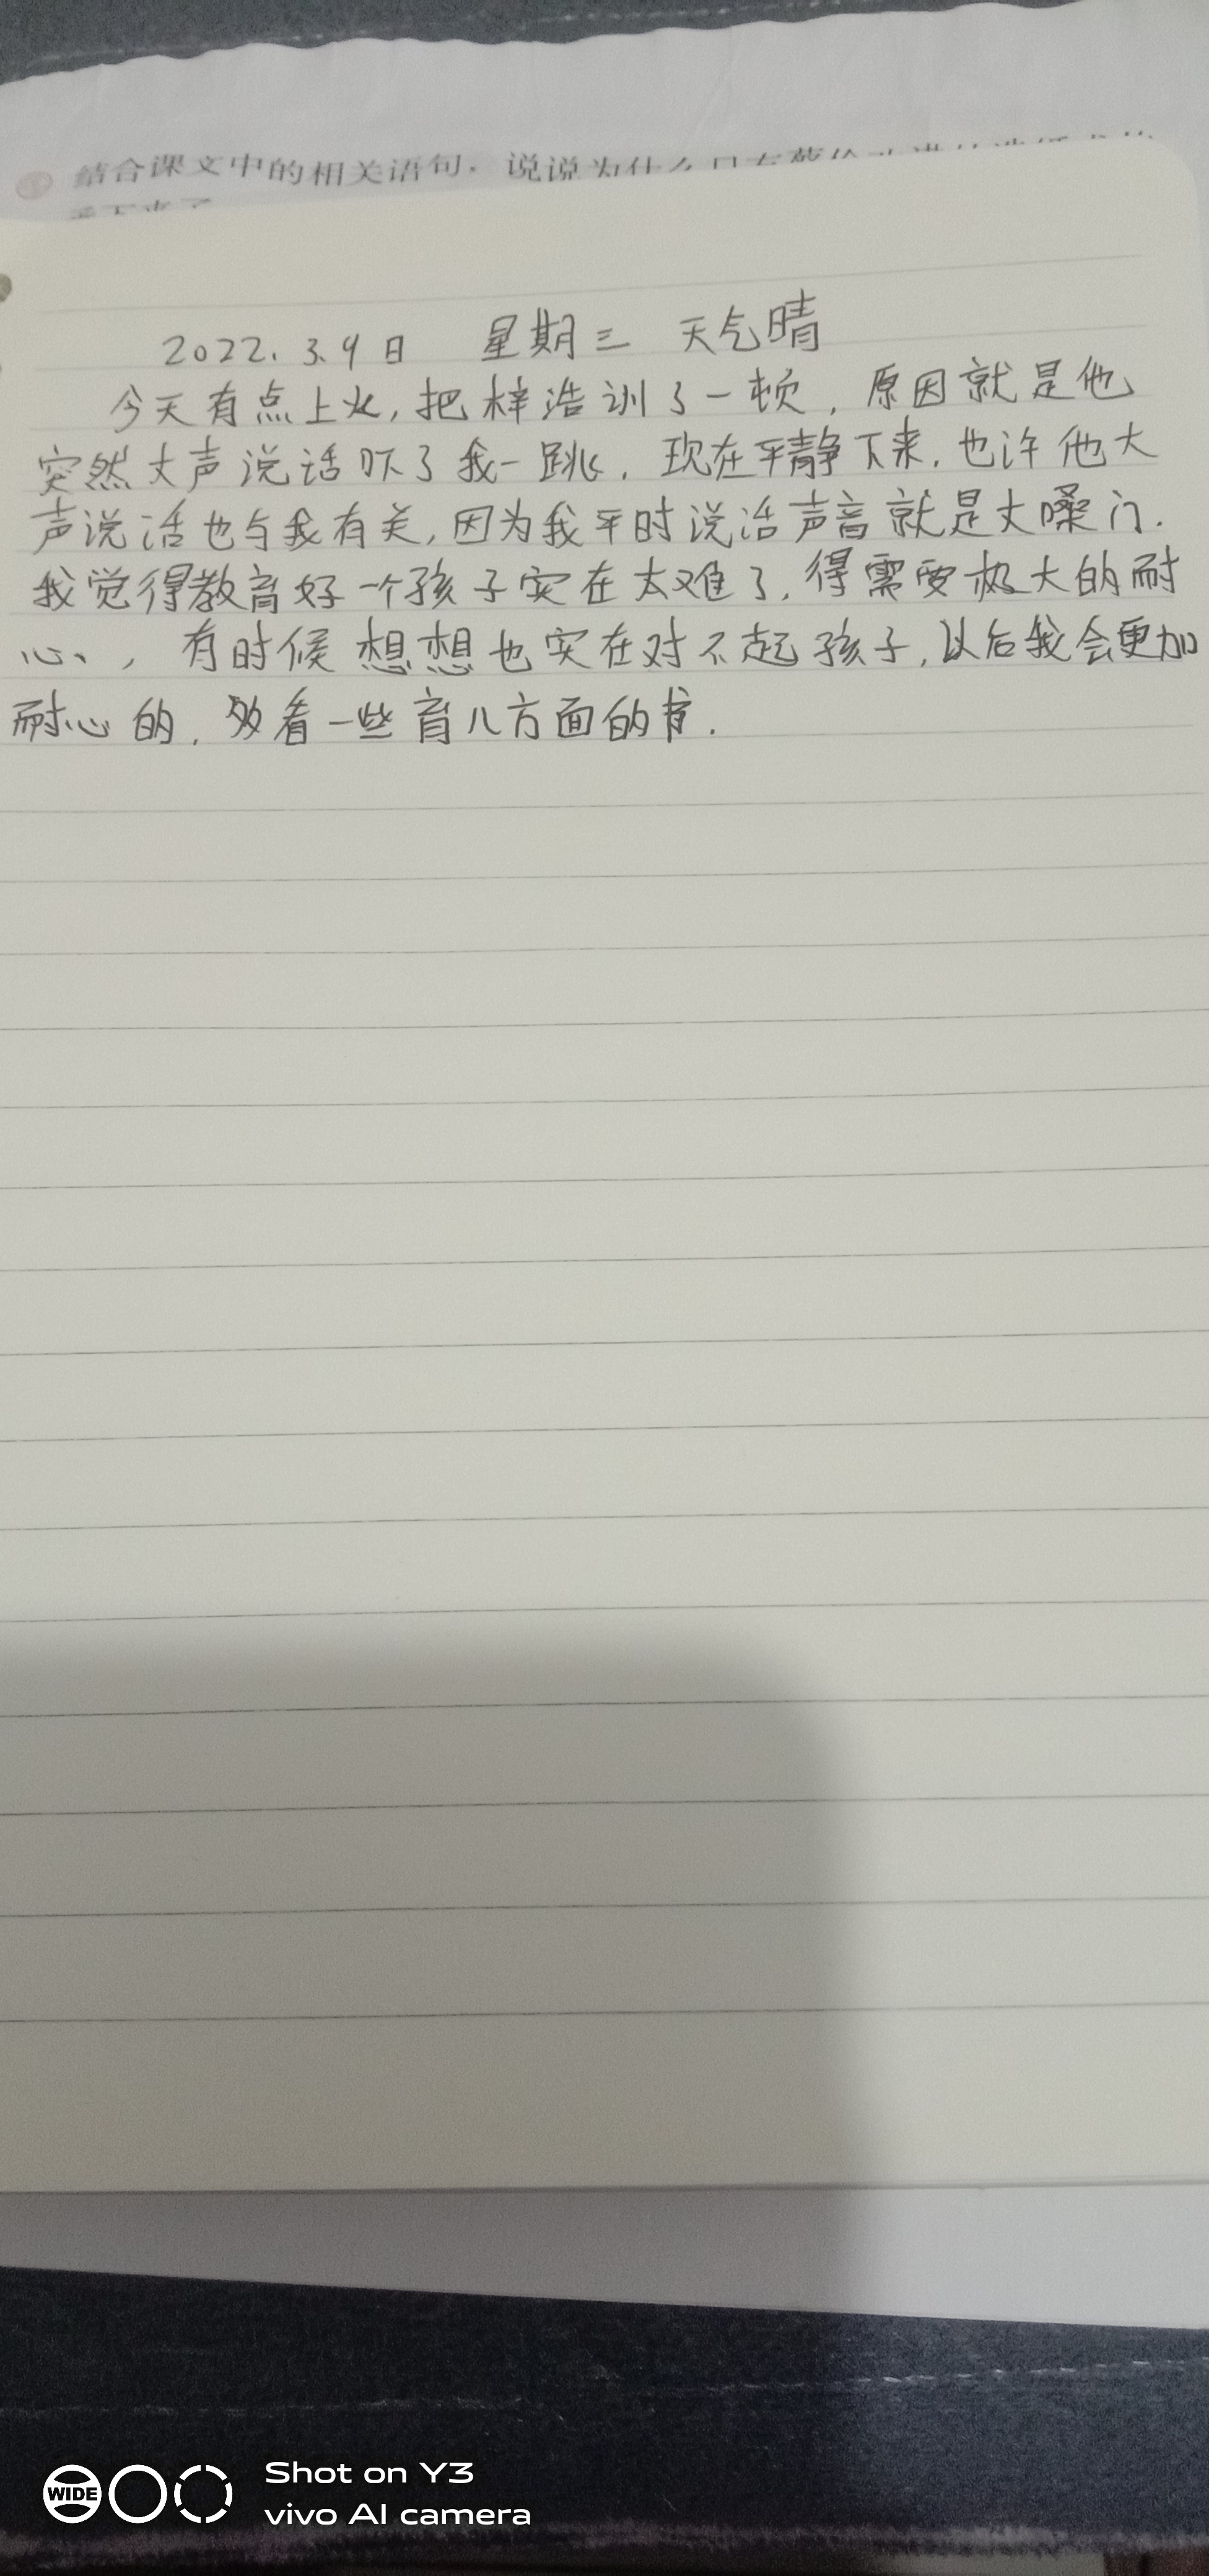 结合课文中的相关语句，说说为什么只有蔡
2022.3.9日 星期三 天气晴
今天有点上火，把梓浩训了一顿，原因就是他
突然大声说话吓了我一跳，现在平静下来，也许他大
声说话也与我有关，因为我平时说话声音就是大嗓门.
我觉得教育好一个孩子实在太难了，得需要极大的耐
心、，有时候想想也实在对不起孩子，以后我会更加
耐心的，多看一些育儿方面的书.
WIDE
Shot on Y3
vivo AI camera